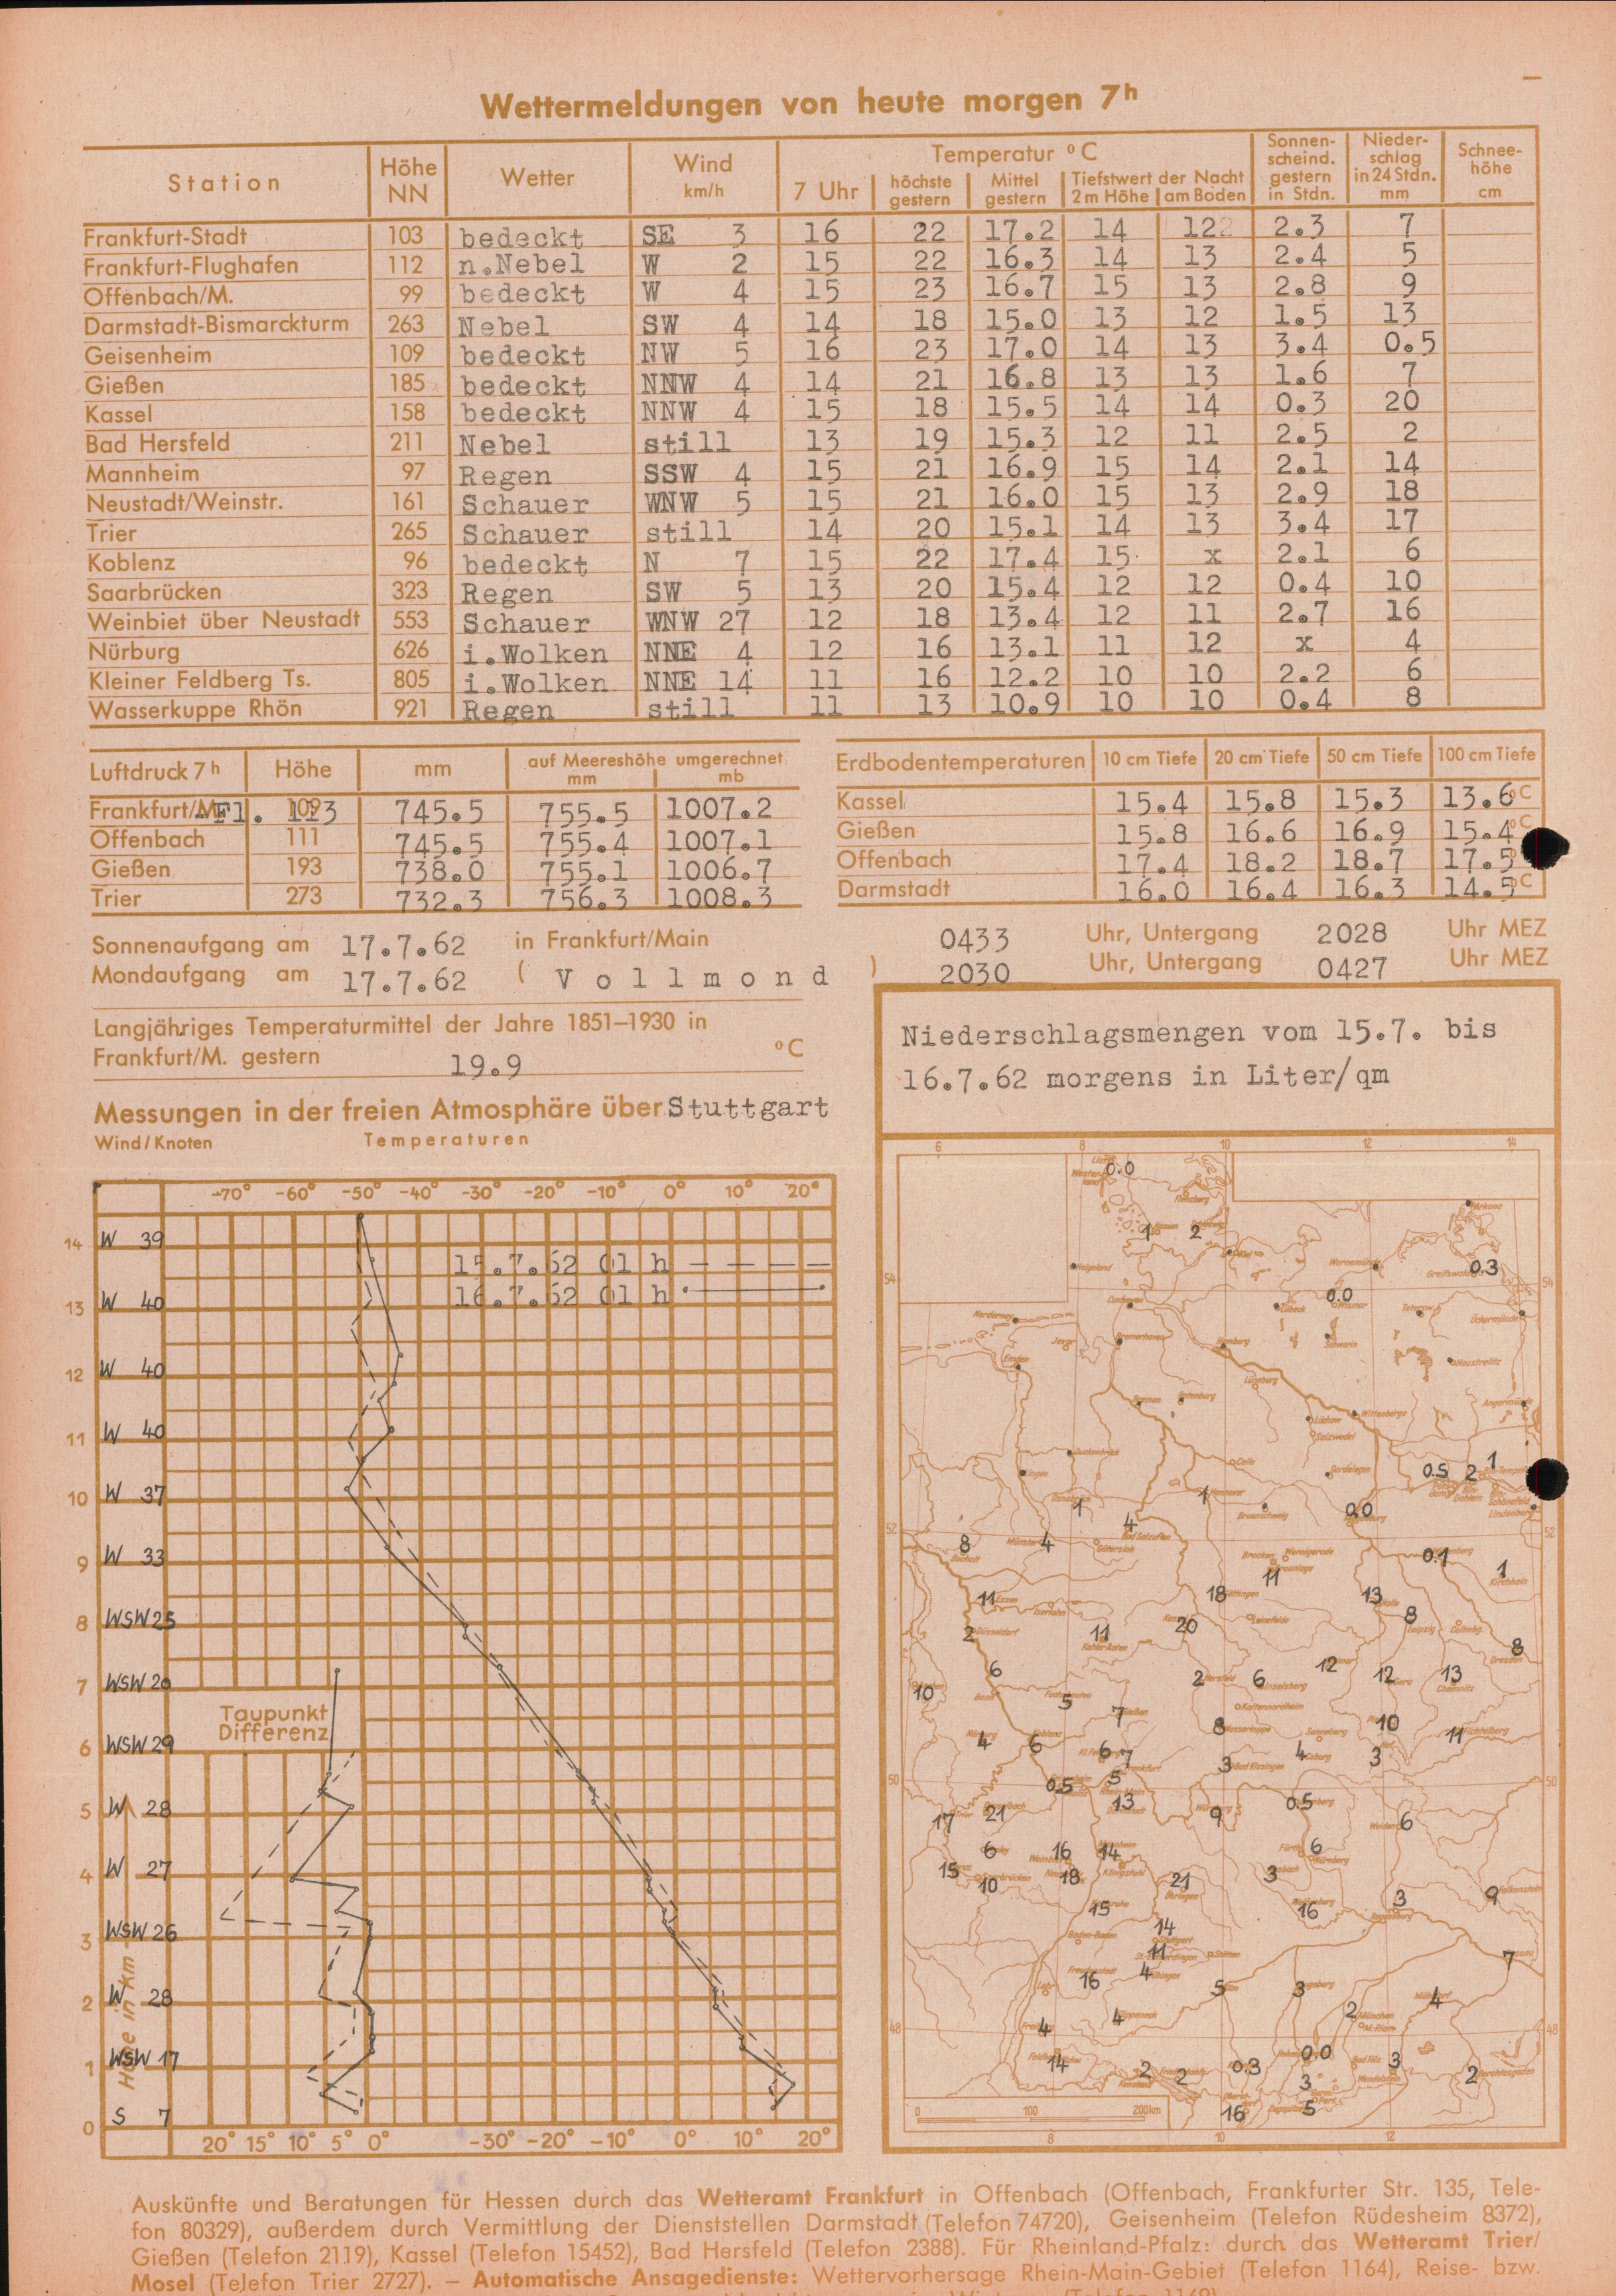 Wettermeldungen von heute morgen 7h
Station Höhe NN Wetter Wind km/h Temperatur °C Sonnen-scheind. gestern in Stdn. Nieder-schlag in 24 Stdn. mm Schnee-höhe cm
7 Uhr höchste gestern Mittel gestern Tiefstwert der Nacht 2 m Höhe am Boden
Frankfurt-Stadt 103 bedeckt SE 3 16 22 17.2 14 12 2.3 7
Frankfurt-Flughafen 112 n.Nebel W 2 15 22 16.3 14 13 2.4 5
Offenbach/M. 99 bedeckt W 4 15 23 16.7 15 13 2.8 9
Darmstadt-Bismarckturm 263 Nebel SW 4 14 18 15.0 13 12 1.5 13
Geisenheim 109 bedeckt NW 5 16 23 17.0 14 13 3.4 0.5
Gießen 185 bedeckt NNW 4 14 21 16.8 13 13 1.6 7
Kassel 158 bedeckt NNW 4 15 18 15.5 14 14 0.3 20
Bad Hersfeld 211 Nebel still 13 19 15.3 12 11 2.5 2
Mannheim 97 Regen SSW 4 15 21 16.9 15 14 2.1 14
Neustadt/Weinstr. 161 Schauer WNW 5 15 21 16.0 15 13 2.9 18
Trier 265 Schauer still 14 20 15.1 14 13 3.4 17
Koblenz 96 bedeckt N 7 15 22 17.4 15 x 2.1 6
Saarbrücken 323 Regen SW 5 13 20 15.4 12 12 0.4 10
Weinbiet über Neustadt 553 Schauer WNW 27 12 18 13.4 12 11 2.7 16
Nürburg 626 i.Wolken NNE 4 12 16 13.1 11 12 x 4
Kleiner Feldberg Ts. 805 i.Wolken NNE 14 11 16 12.2 10 10 2.2 6
Wasserkuppe Rhön 921 Regen still 11 13 10.9 10 10 0.4 8
Luftdruck 7h Höhe mm auf Meereshöhe umgerechnet mm mb
Frankfurt/M.-Fl. 113 745.5 755.5 1007.2
Offenbach 111 745.5 755.4 1007.1
Gießen 193 738.0 755.1 1006.7
Trier 273 732.3 756.3 1008.3
Erdbodentemperaturen 10 cm Tiefe 20 cm Tiefe 50 cm Tiefe 100 cm Tiefe
Kassel 15.4 15.8 15.3 13.6 °C
Gießen 15.8 16.6 16.9 15.4 °C
Offenbach 17.4 18.2 18.7 17.5
Darmstadt 16.0 16.4 16.3 14.5 °C
Sonnenaufgang am 17.7.62 in Frankfurt/Main 0433 Uhr, Untergang 2028 Uhr MEZ
Mondaufgang am 17.7.62 ( Vollmond ) 2030 Uhr, Untergang 0427 Uhr MEZ
Langjähriges Temperaturmittel der Jahre 1851–1930 in
Frankfurt/M. gestern 19.9 °C
Messungen in der freien Atmosphäre über Stuttgart
Wind/Knoten Temperaturen
-70° -60° -50° -40° -30° -20° -10° 0° 10° 20°
14 W 39
15.7.62 01 h
13 W 40 16.7.62 01 h
12 W 40
11 W 40
10 W 37
9 W 33
8 WSW 25
7 WSW 20
Taupunkt
Differenz
6 WSW 29
5 W 28
4 W 27
3 WSW 26
2 W 28
1 WSW 17
0 S 7
Höhe in km
20° 15° 10° 5° 0° -30° -20° -10° 0° 10° 20°
Niederschlagsmengen vom 15.7. bis
16.7.62 morgens in Liter/qm
6 8 10 12 14
0.0
1 2
54 0.3 54
0.0
0.5 2 1
1 1 0.0
52 4 52
8 4 0.1 1
11 18 11 13 8
2 11 20 8
6 2 6 12 12 13
10 5 7 8 10 11
4 6 6 7 3 4 3
50 0.5 5 50
17 21 13 9 0.5 6
6 16 14 6
15 10 18 21 3 3 9
15 16
14
11 7
16 4 5 3 4
4 4 2
48 48
14 2 2 0.3 0.0 3 2
3
16 5
0 100 200km
8 10 12
Auskünfte und Beratungen für Hessen durch das Wetteramt Frankfurt in Offenbach (Offenbach, Frankfurter Str. 135, Tele-
fon 80329), außerdem durch Vermittlung der Dienststellen Darmstadt (Telefon 74720), Geisenheim (Telefon Rüdesheim 8372),
Gießen (Telefon 2119), Kassel (Telefon 15452), Bad Hersfeld (Telefon 2388). Für Rheinland-Pfalz: durch das Wetteramt Trier/
Mosel (Telefon Trier 2727). – Automatische Ansagedienste: Wettervorhersage Rhein-Main-Gebiet (Telefon 1164), Reise- bzw.